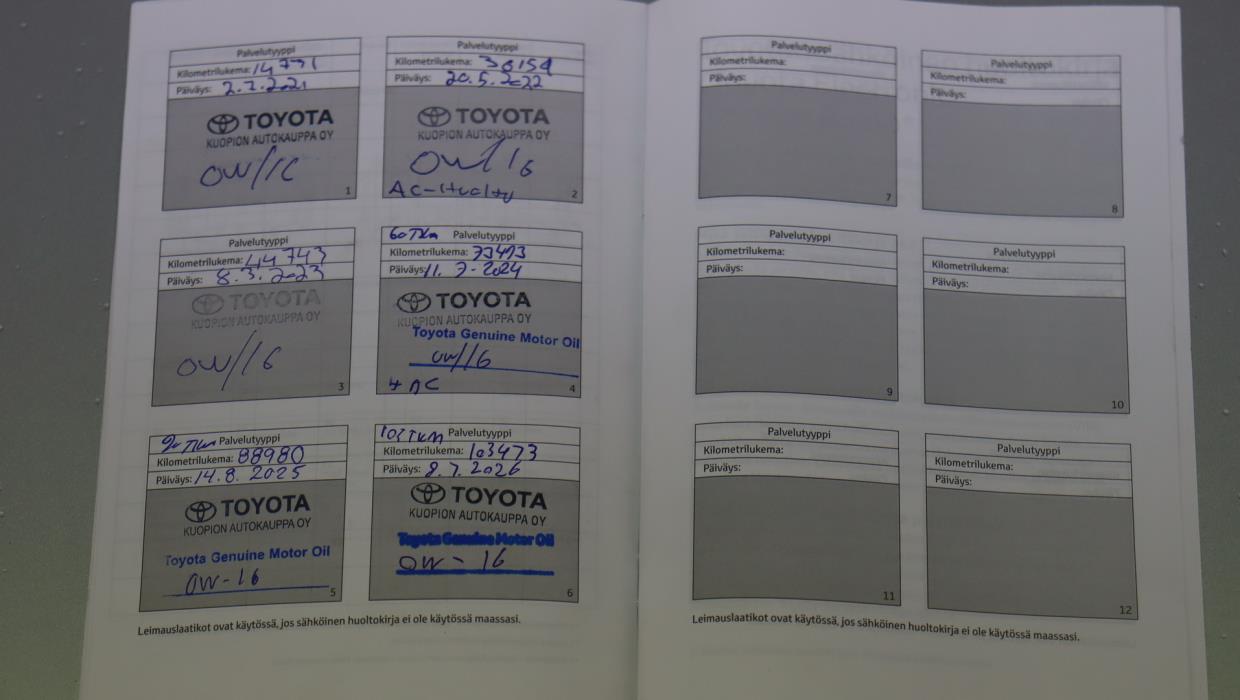 Palvelutyyppi
Kilometrilukema: 14771
Päiväys: 2.2.2021
TOYOTA
KUOPION AUTOKAUPPA OY
OW/16
1
Palvelutyyppi
Kilometrilukema: 30159
Päiväys: 20.5.2022
TOYOTA
KUOPION AUTOKAUPPA OY
OW/16
AC-Huolto
2
Palvelutyyppi
Kilometrilukema: 44743
Päiväys: 8.3.2023
TOYOTA
KUOPION AUTOKAUPPA OY
OW/16
3
60TKm Palvelutyyppi
Kilometrilukema: 73473
Päiväys: 11.7-2024
TOYOTA
KUOPION AUTOKAUPPA OY
Toyota Genuine Motor Oil
OW/16
+ AC
4
90TKm Palvelutyyppi
Kilometrilukema: 88980
Päiväys: 14.8.2025
TOYOTA
KUOPION AUTOKAUPPA OY
Toyota Genuine Motor Oil
OW-16
5
TKM Palvelutyyppi
Kilometrilukema: 103473
Päiväys: 8.7.2026
TOYOTA
KUOPION AUTOKAUPPA OY
Toyota Genuine Motor Oil
OW-16
6
Leimauslaatikot ovat käytössä, jos sähköinen huoltokirja ei ole käytössä maassasi.
Palvelutyyppi
Kilometrilukema:
Päiväys:
7
Palvelutyyppi
Kilometrilukema:
Päiväys:
8
Palvelutyyppi
Kilometrilukema:
Päiväys:
9
Palvelutyyppi
Kilometrilukema:
Päiväys:
10
Palvelutyyppi
Kilometrilukema:
Päiväys:
11
Palvelutyyppi
Kilometrilukema:
Päiväys:
12
Leimauslaatikot ovat käytössä, jos sähköinen huoltokirja ei ole käytössä maassasi.